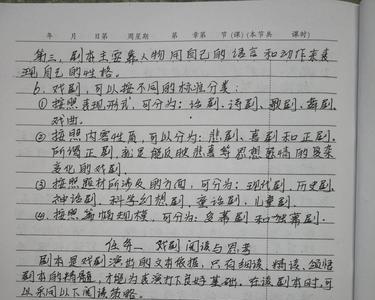 年 月 日第 周星期 第 章第 节(课)(本节共 课时)
第三、剧本主要靠人物用自己的语言和动作来表
现自己的性格。
6. 戏剧,可以按不同的标准分类:
① 按照表现形式,可分为:话剧、诗剧、歌剧、舞剧、
戏曲。
② 按照内容性质,可以分为:悲剧、喜剧和正剧。
所谓正剧,就是能反映悲喜等思想感情的复杂
变化的戏剧。
③ 按照题材所涉及的方面,可分为:现代剧、历史剧、
神话剧、科学幻想剧、童话剧、儿童剧。
④ 按照篇幅规模,可分为:多幕剧和独幕剧。
任务一 戏剧阅读与思考
剧本是戏剧演出的文本依据,只有细读、精读、领悟
剧本的精髓,才能为表演打下良好基础。在读剧本时,可
以采用以下阅读策略。